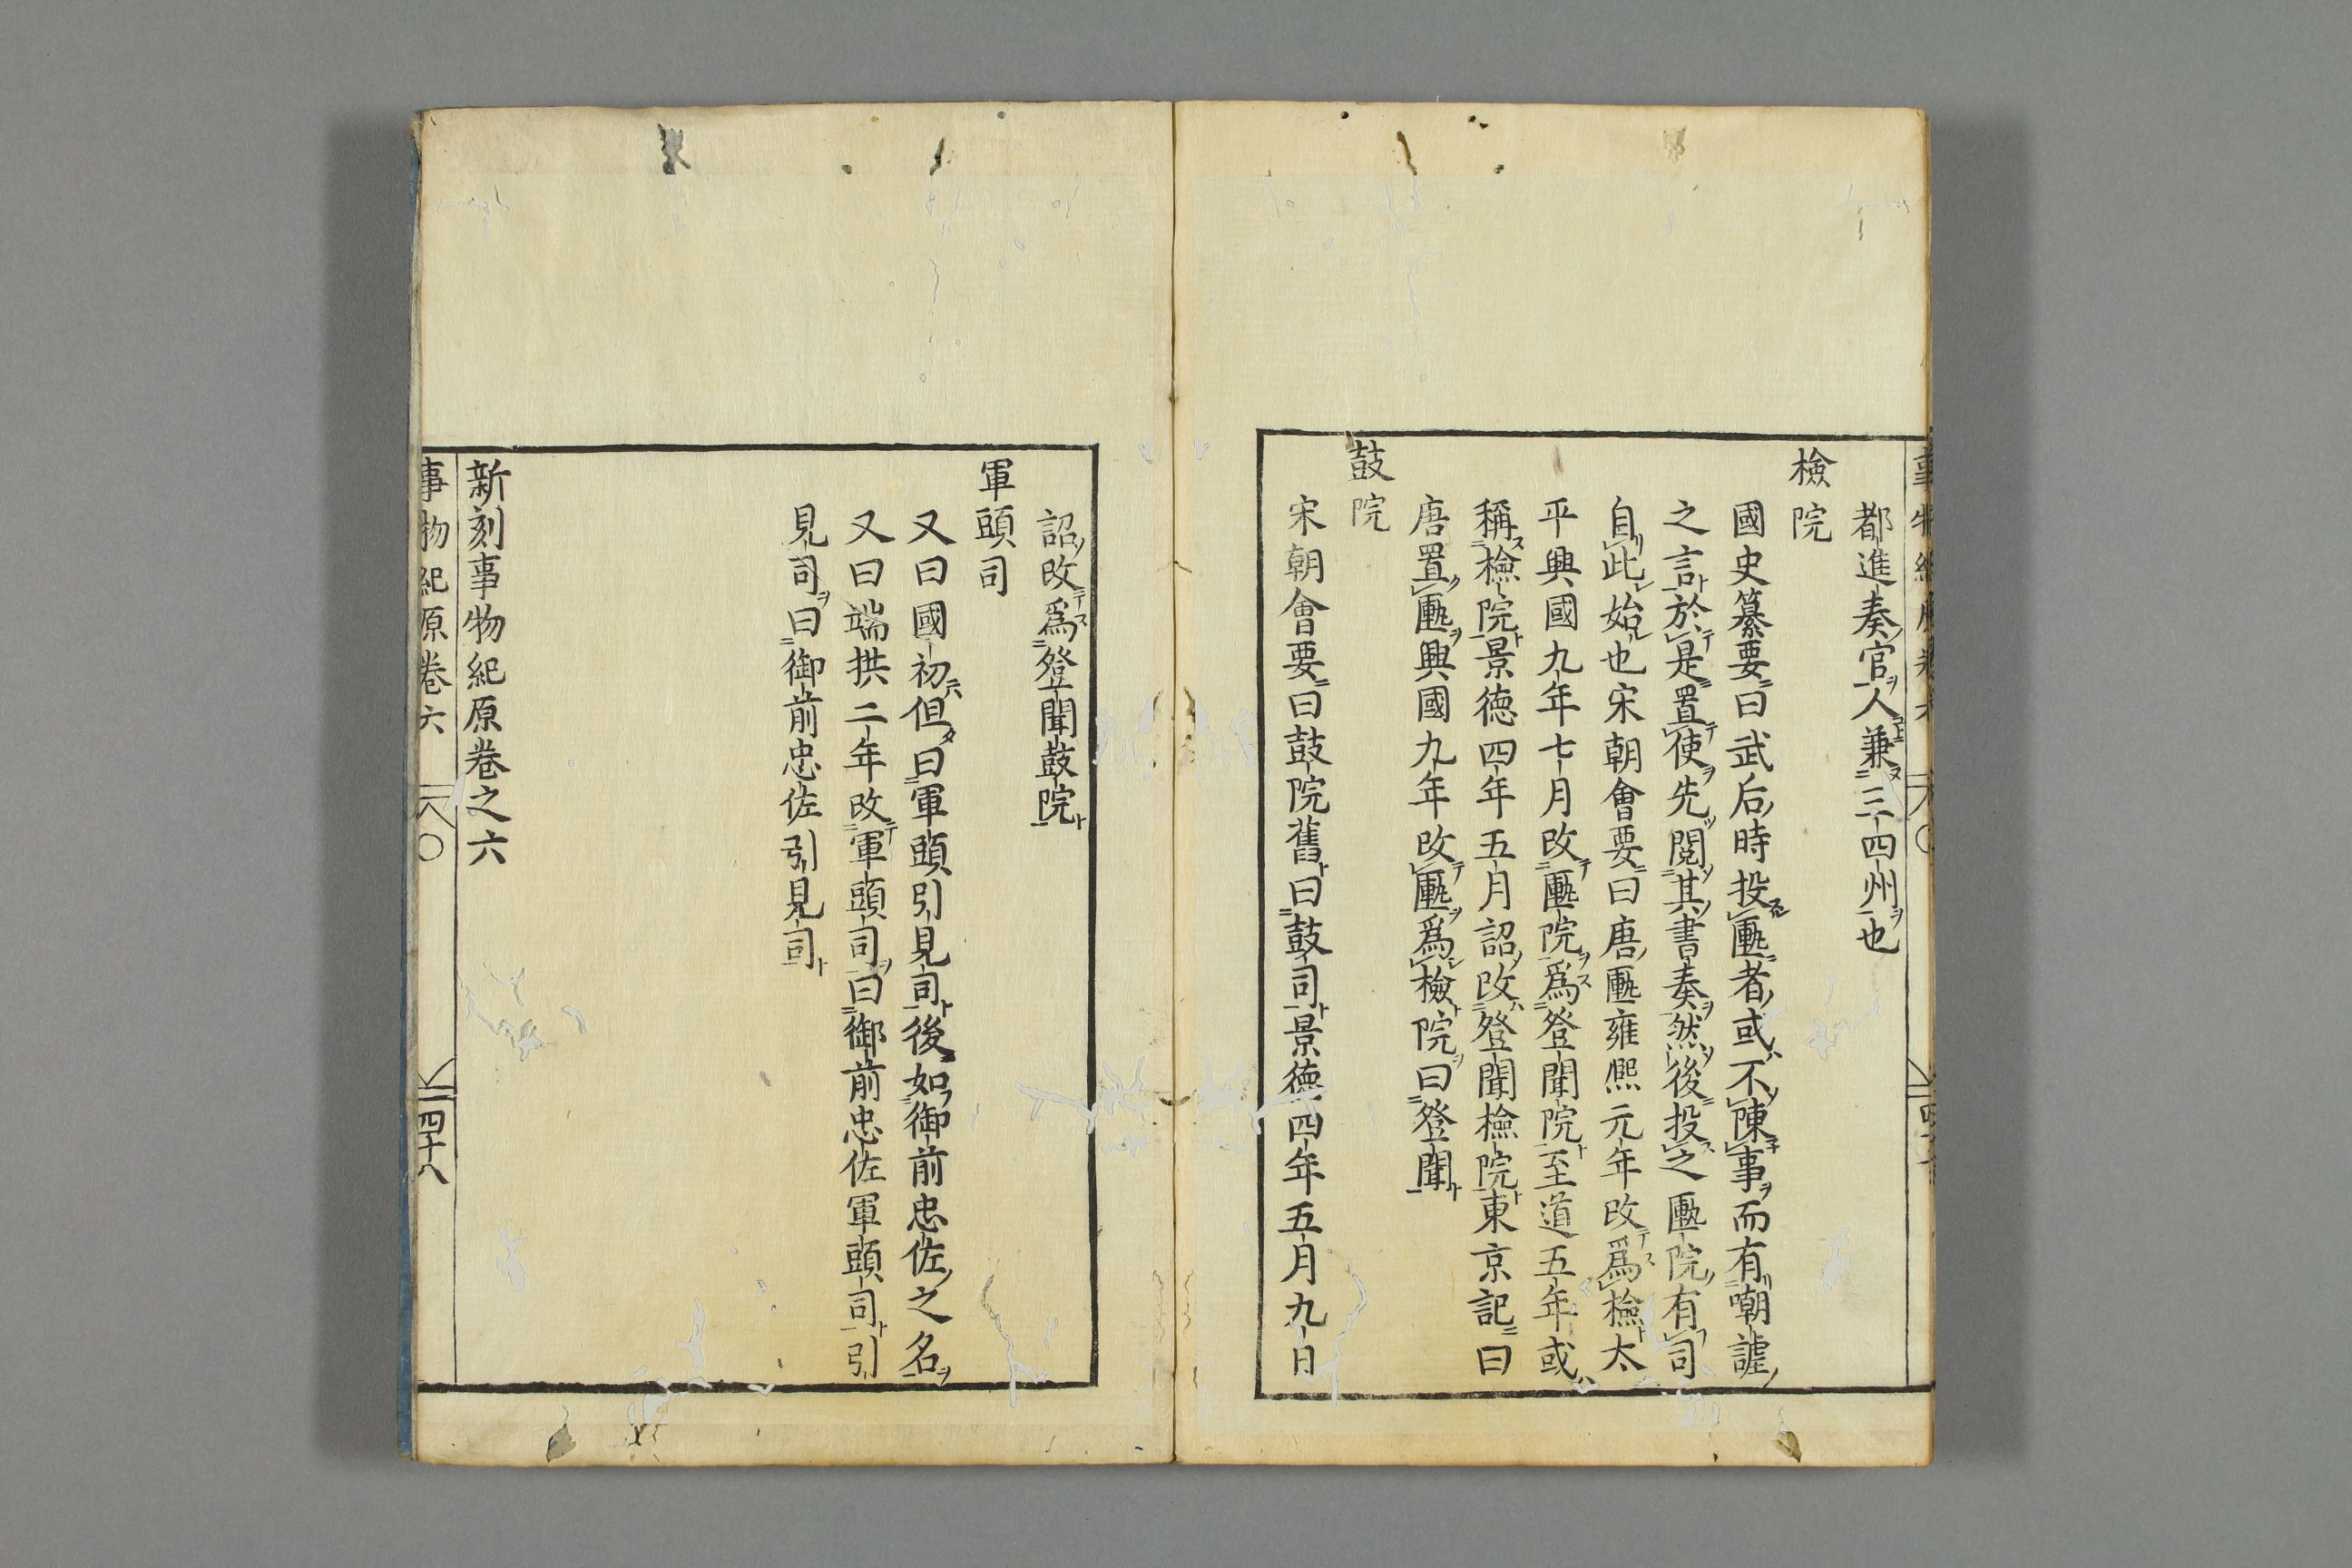 都進奏官人兼三四州也
檢院
國史纂要曰武后時投匭者或不陳事而有嘲謔
之言於是置使先閱其書奏然後投之匭院有司
自此始也宋朝會要曰唐匭雍熙元年改爲檢太
平興國九年七月改匭院爲登聞院至道五年或
稱檢院景德四年五月詔改登聞檢院東京記曰
唐置匭興國九年改匭爲檢院曰登聞
鼓院
宋朝會要曰鼓院舊曰鼓司景德四年五月九日
詔改爲登聞鼓院
軍頭司
又曰國初但曰軍頭引見司後如御前忠佐之名
又曰端拱二年改軍頭司曰御前忠佐軍頭司引
見司曰御前忠佐引見司
新刻事物紀原卷之六
事物紀原卷六
四十八